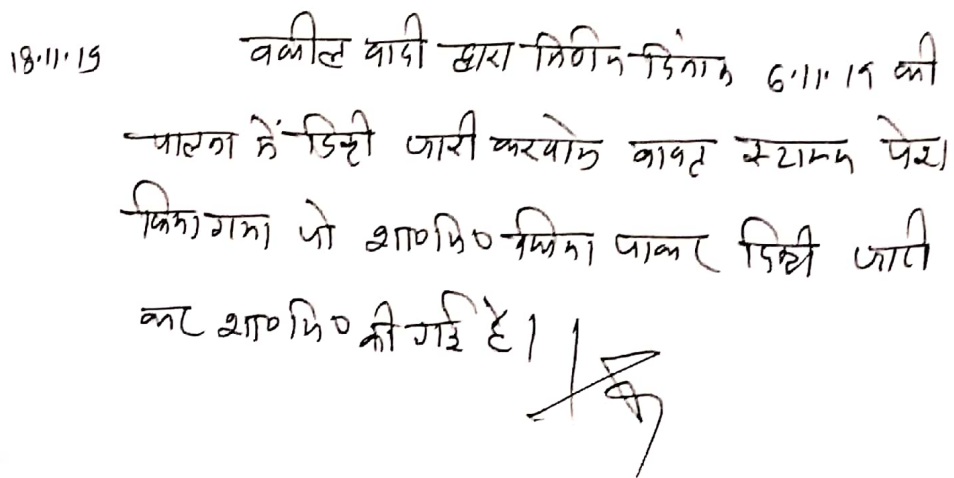 18.11.19 वकील वादी द्वारा निर्णय दिनांक 6.11.19 की
पालना में डिक्री जारी करवाने बाबत स्टाम्प पेश
किया गया जो शा०मि० किया जाकर डिक्री जारी
कर शा०मि० की गई है।